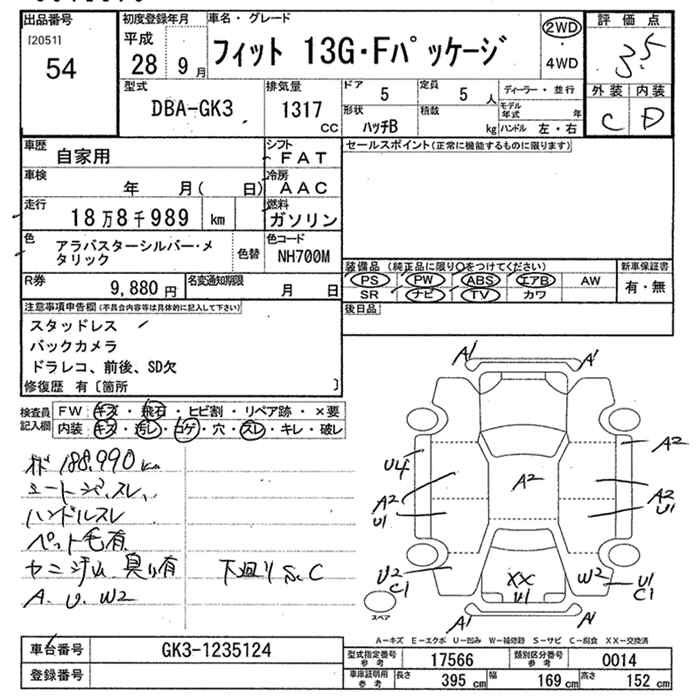 出品番号
[2051]
54
初度登録年月
平成
28 9月
車名・グレード
フィット 13G・Fパッケージ
2WD
・
4WD
評価点
3.5
外装 内装
C D
型式
DBA-GK3
排気量
1317
cc
ドア
5
定員
5 人
形状
ハッチB
積載
kg
ディーラー・並行
モデル年式 年
ハンドル 左・右
車歴
自家用
シフト
FAT
車検
年 月( 日)
冷房
AAC
走行
18万8千989 km
燃料
ガソリン
色
アラバスターシルバー・メタリック
色替
色コード
NH700M
R券
9,880円
名変通知期限
月 日
セールスポイント(正常に機能するものに限ります)
装備品(純正品に限り○をつけてください)
PS PW ABS エアB AW
SR ナビ TV カワ
新車保証書
有・無
後日品
注意事項申告欄(不具合内容等は具体的に記入して下さい)
スタッドレス
バックカメラ
ドラレコ、前後、SD欠
修復歴 有〔箇所 〕
検査員記入欄
FW キズ・飛石・ヒビ割・リペア跡・×要
内装 キズ・汚レ・コゲ・穴・スレ・キレ・破レ
188,990km
シートシワ、スレ、
ハンドルスレ
ペット毛有
ヤニ汚レ 臭い有
下廻りS.C
A. U. W2
A1 A1
U4
A2
A2
A2 U1
A2 U1
U2 C1
XX U1
W2
U1 C1
A1 A1
スペア
A-キズ E-エクボ U-凹み W-補修跡 S-サビ C-腐食 XX-交換済
車台番号
GK3-1235124
登録番号
型式指定番号 参考
17566
類別区分番号 参考
0014
車庫証明用 参考
長さ 395 cm
幅 169 cm
高さ 152 cm